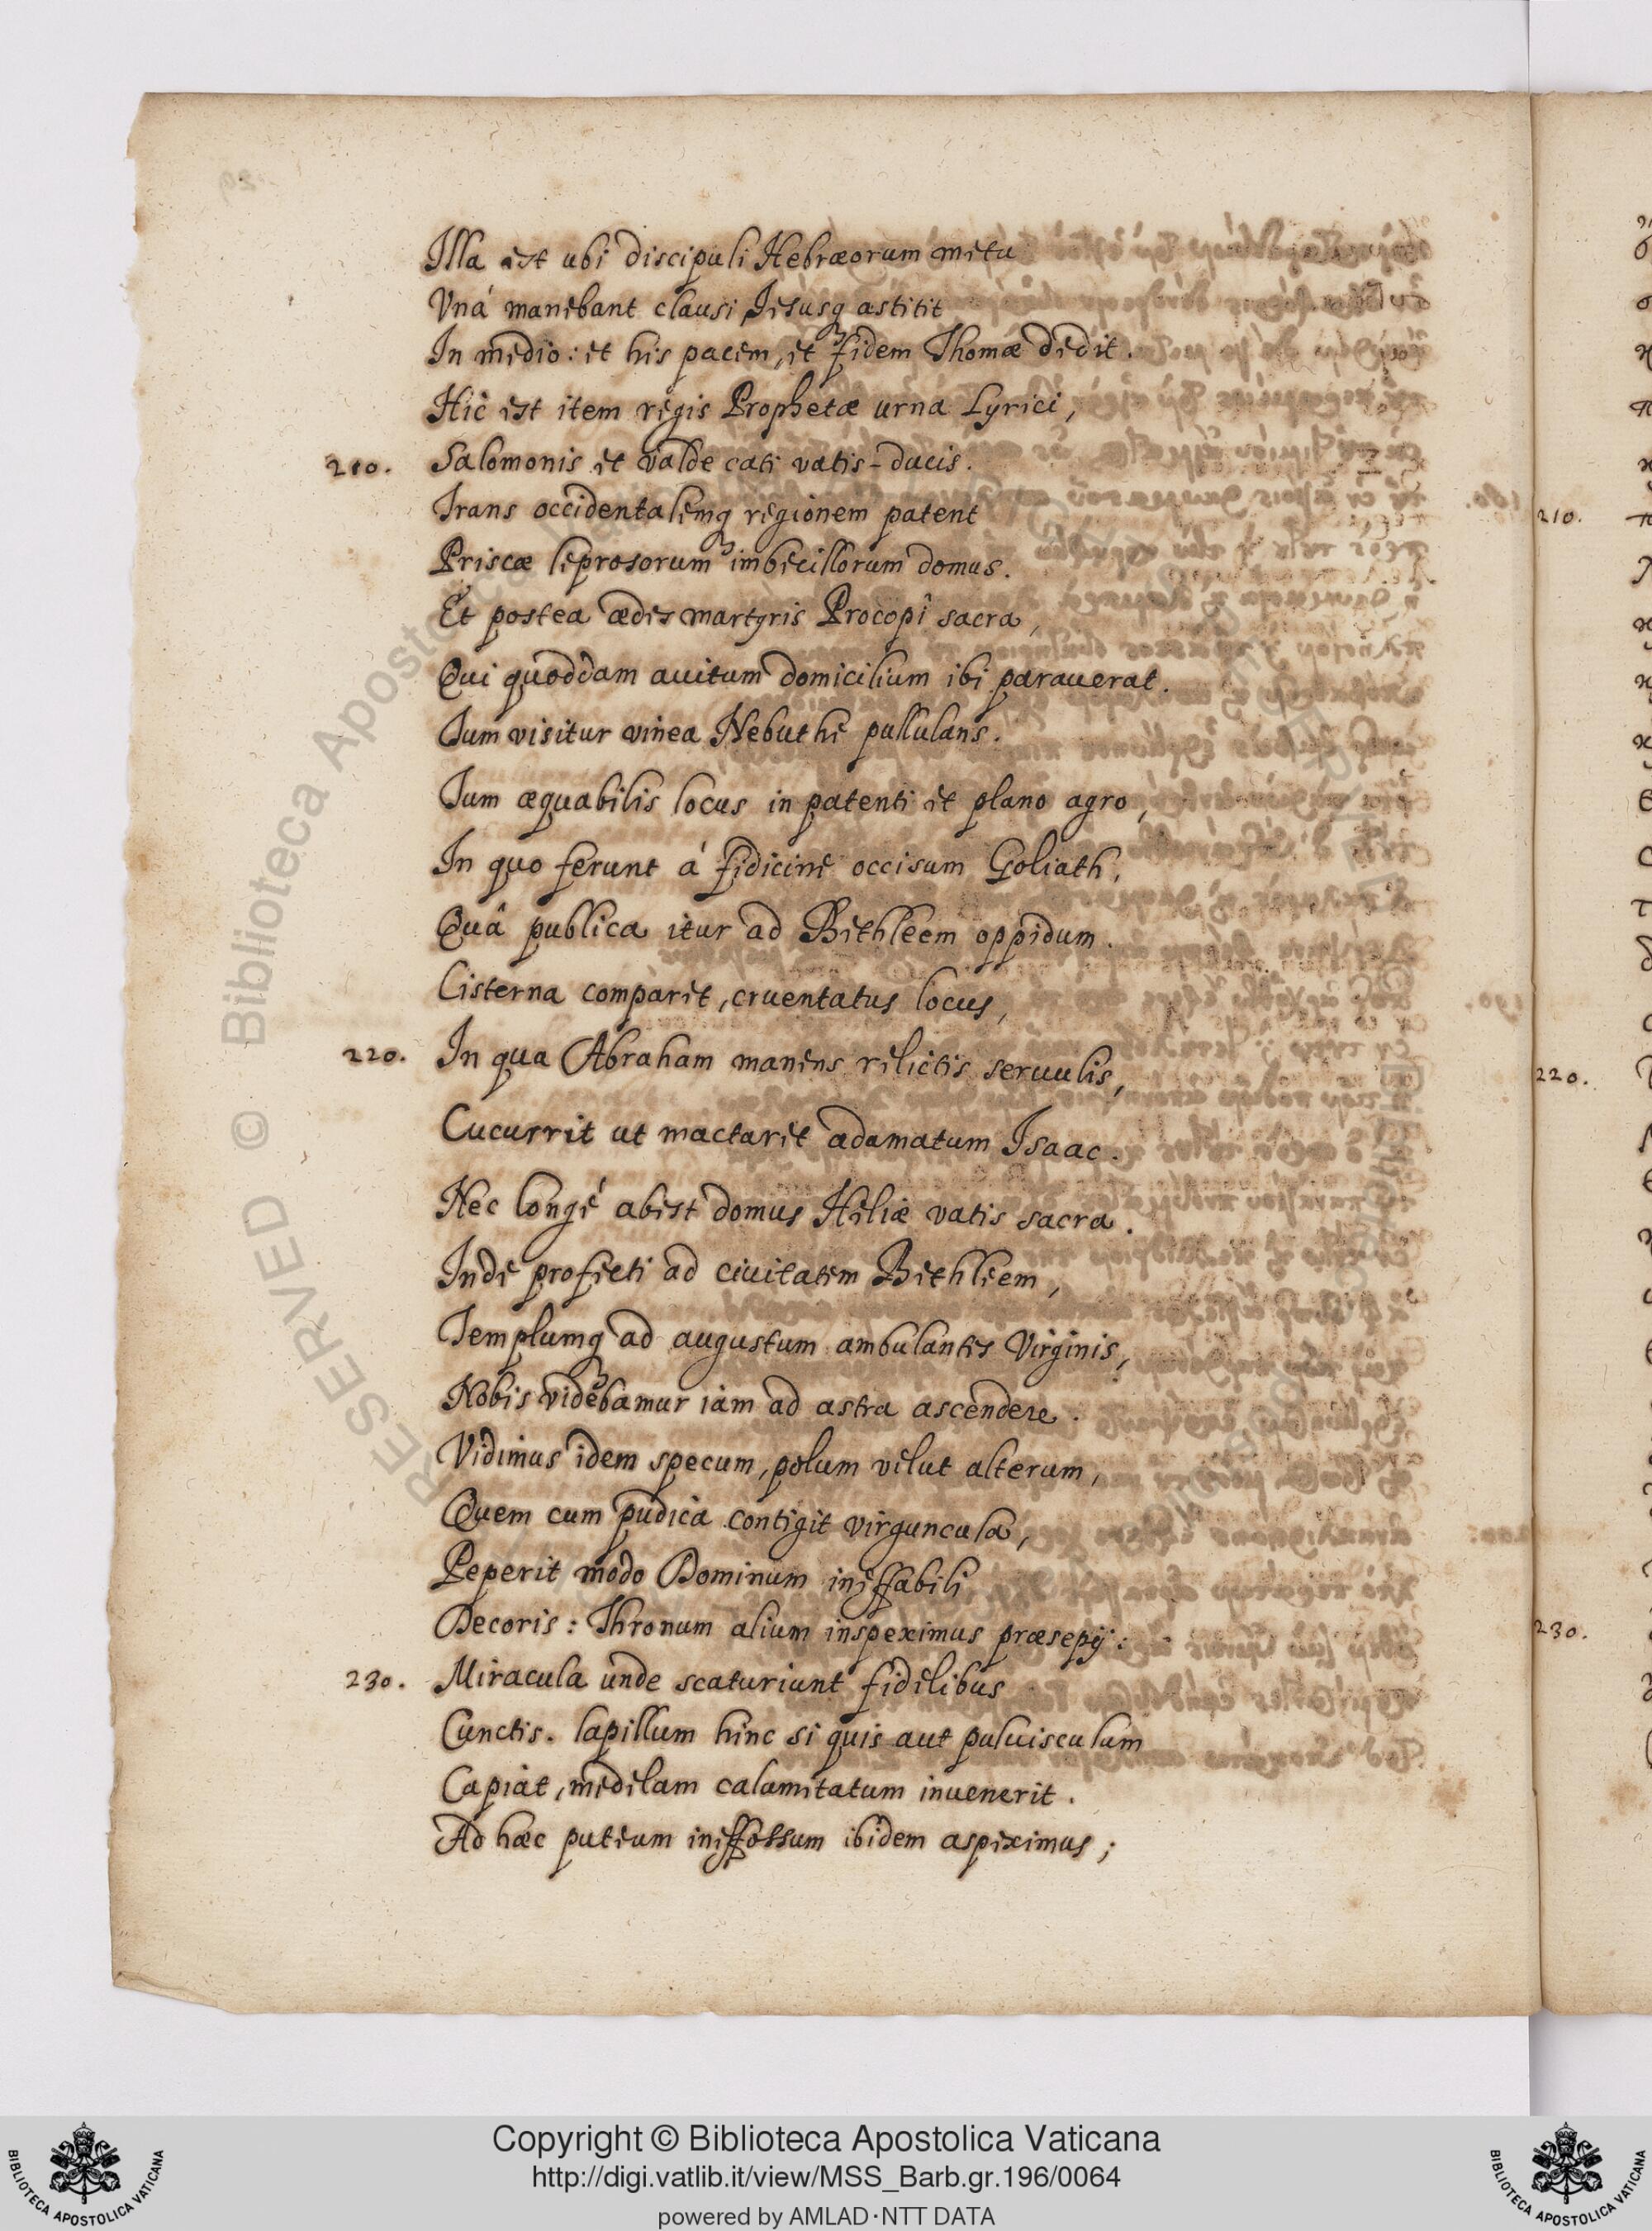 Illa est ubi discipuli Hebræorum metu
Vná manebant clausi, Jesusq₃ astitit
In medio: et his pacem, et fidem Thomæ dedit.
Hic est item regis Prophetæ urna Lyrici,
210. Salomonis et valde cati vatis-ducis.
Trans occidentalemq₃ regionem patent
Priscæ leprosorum imbecillorum domus.
Et postea ædes martyris Procopî sacra,
Qui quoddam auitum domicilium ibi parauerat.
Tum visitur vinea Nebuthe pullulans.
Tum æquabilis locus in patenti et plano agro,
In quo ferunt á fidicine occisum Goliath,
Quâ publica itur ad Bethleem oppidum.
Cisterna comparet, cruentatus locus,
220. In qua Abraham manens relictis seruulis,
Cucurrit ut mactaret adamatum Isaac.
Nec longé abest domus Heliæ vatis sacra.
Inde profecti ad ciuitatem Bethleem,
Templumq₃ ad augustum ambulantes Virginis,
Nobis videbamur iam ad astra ascendere.
Vidimus idem specum, polum velut alterum,
Quem cum pudica contigit virguncula,
Peperit modo Dominum ineffabili
Decoris: Thronum alium inspeximus præsepij:
230. Miracula unde scaturiunt fidelibus
Cunctis. lapillum hinc si quis aut puluisculum
Capiat, medelam calamitatum inuenerit.
Ad hæc puteum ineffossum ibidem aspeximus;
210.
220.
230.
RESERVED © Biblioteca Apostolica
Copyright © Biblioteca Apostolica Vaticana
http://digi.vatlib.it/view/MSS_Barb.gr.196/0064
powered by AMLAD·NTT DATA
BIBLIOTECA APOSTOLICA VATICANA
BIBLIOTECA APOSTOLICA VATICANA